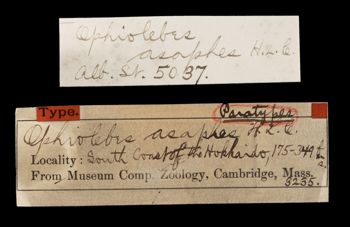 Ophiolebes
asaphes H.L.C.
Alb. St. 5037.
Type. Paratypes
Ophiolebes asaphes H.L.C.
Locality: South Coast of the Hokkaido, 175-349 fms.
From Museum Comp. Zoology, Cambridge, Mass.
3235.